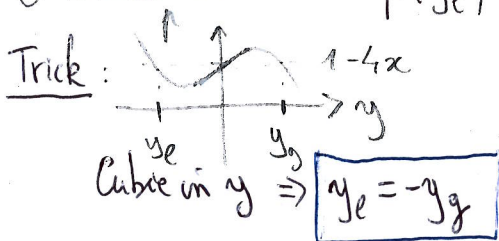 Trick :
1-4x
y
ye yg
Cubic in y ⇒ ye = -yg